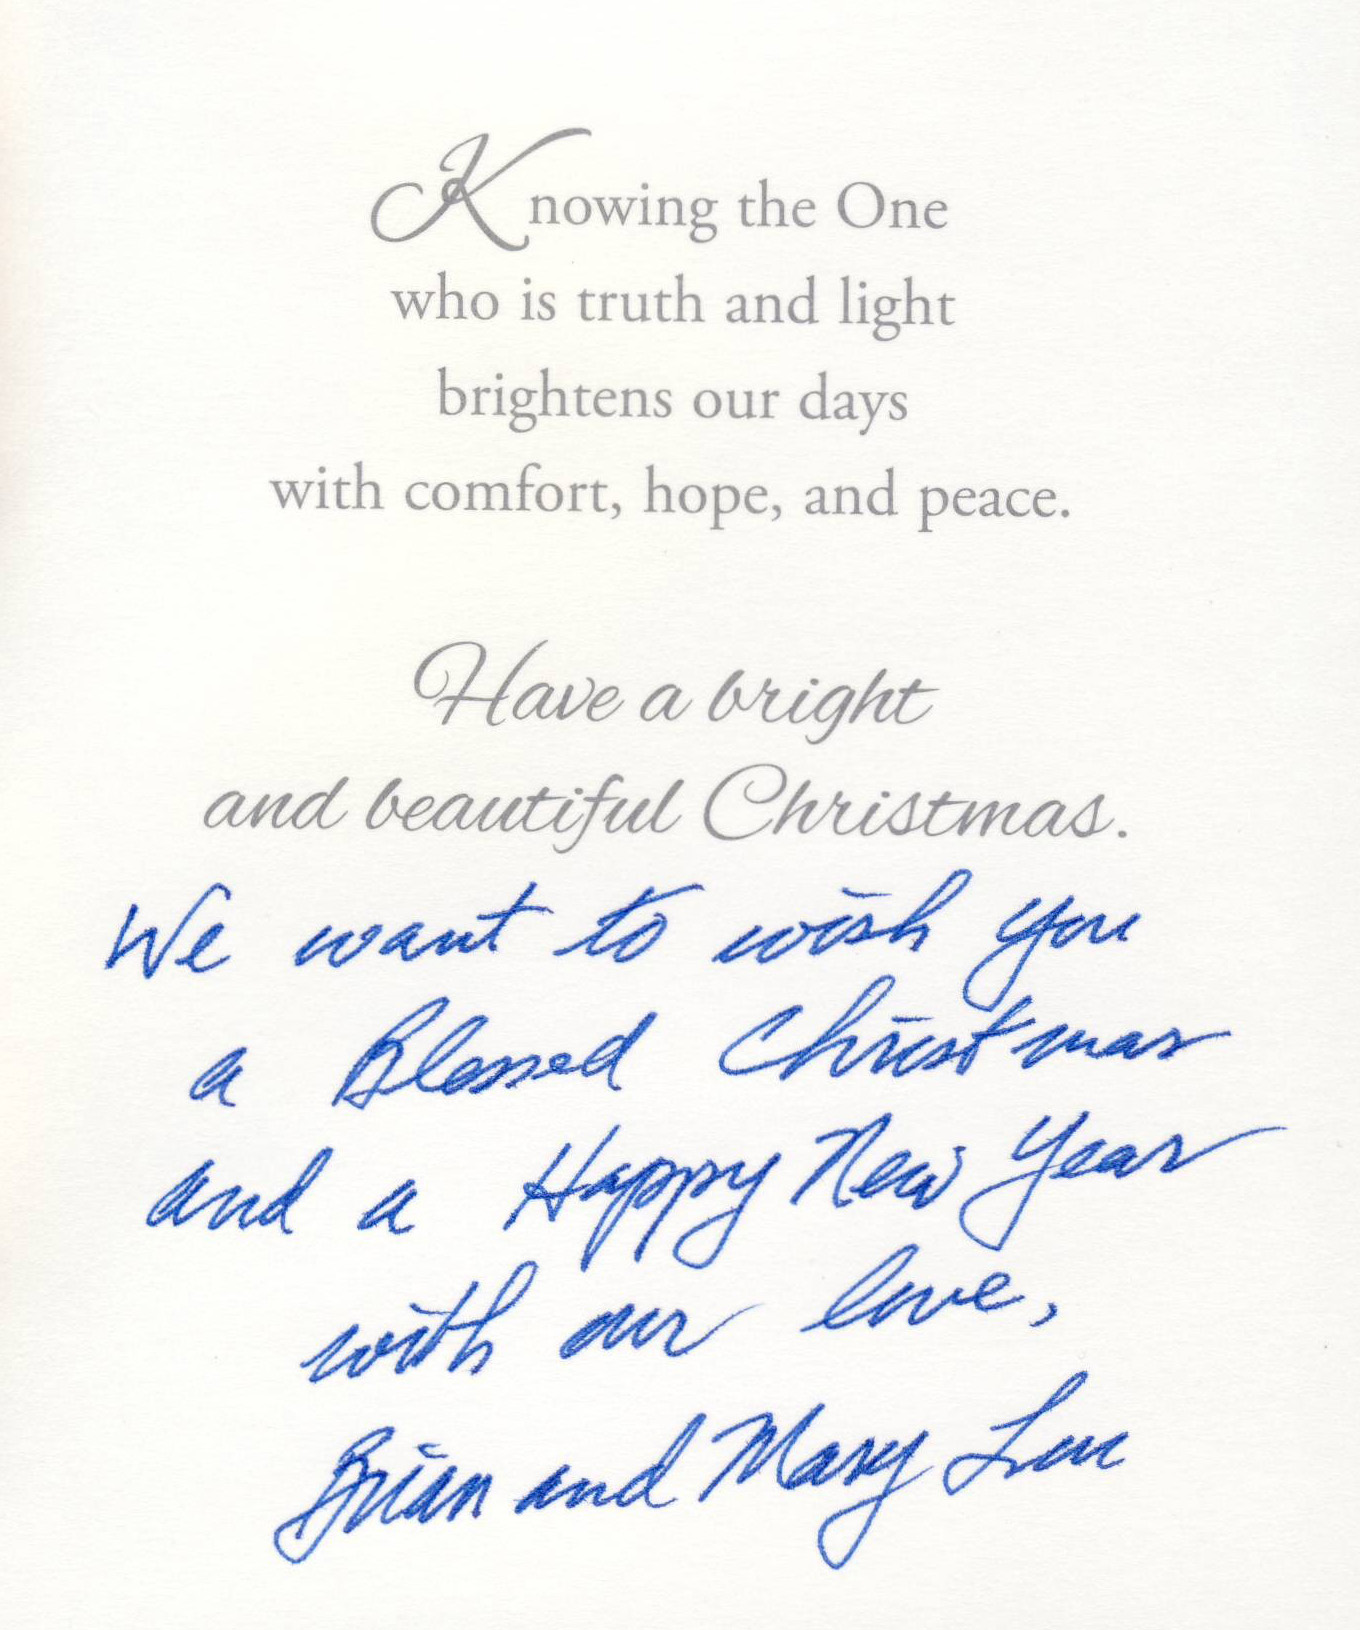 Knowing the One
who is truth and light
brightens our days
with comfort, hope, and peace.
Have a bright
and beautiful Christmas.
We want to wish you
a Blessed Christmas
and a Happy New Year
with our love,
Brian and Mary Lou